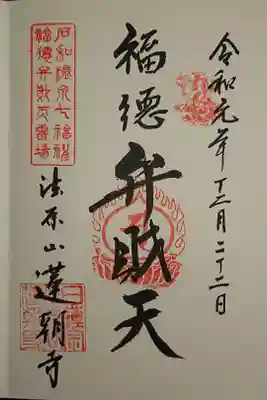 令和元年十二月二十二日
福德弁財天
石和温泉七福神
福德弁財天霊場
法原山蓮朝寺